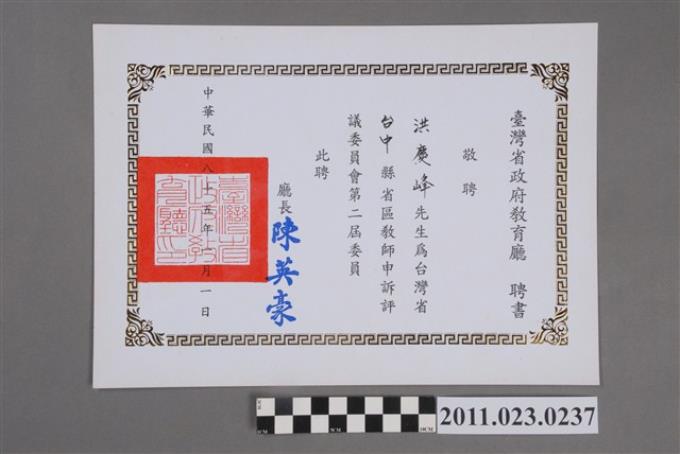 臺灣省政府教育廳 聘書
敬聘
洪慶峰先生為台灣省
台中縣省區教師申訴評
議委員會第二屆委員
此聘
廳長 陳英豪
中華民國八十五年 月一日
臺灣省政府教育廳印
2011.023.0237